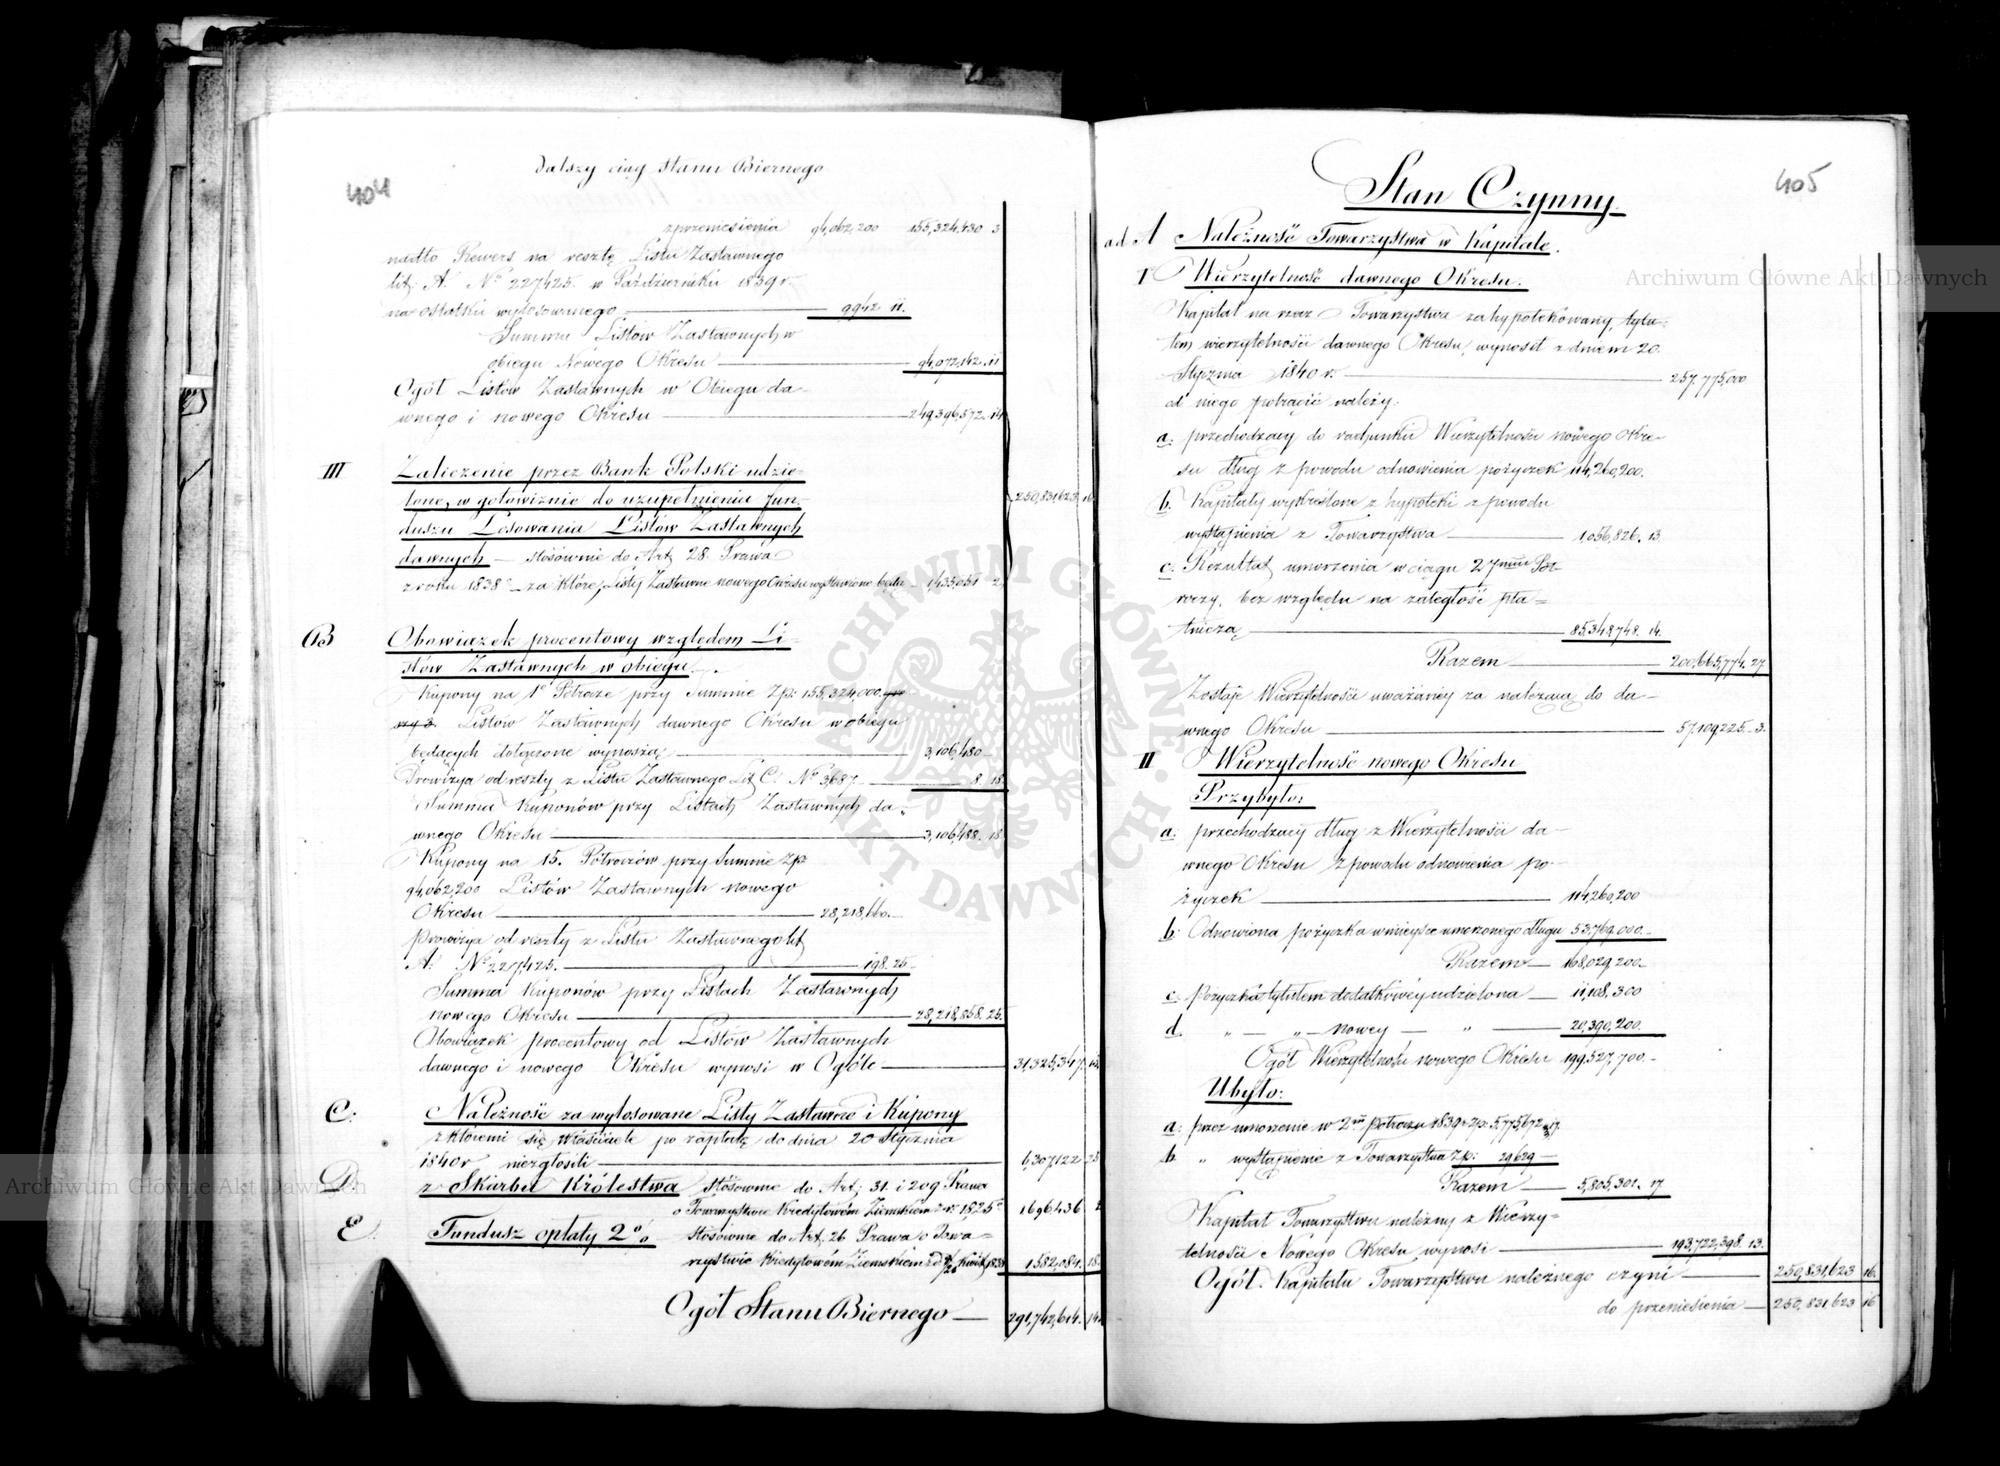 404
Dalszy ciąg Stanu Biernego
zprzeniesienia 94,062,200 155,324,430 3
nadto Rewers na resztę Listu Zastawnego
lit: A. Nº 227425. w Październiku 1839 r.
na ostatku wylosowanego 9942. 11.
Summa Listów Zastawnych w
obiegu Nowego Okresu 94,072,142. 11
Ogół Listów Zastawnych w Obiegu da-
wnego i nowego Okresu 249,396,572. 14
III Zaliczenie przez Bank Polski udzie-
lone, w gotowiznie do uzupełnienia fun-
duszu Losowania Listów Zastawnych
250,831,623 16
dawnych – stosównie do Art: 28. Prawa
z roku 1838º – za które, Listy Zastawne nowego Okresu wystawione będą – 1,435,051 2
B Obowiązek procentowy względem Li-
stów Zastawnych w obiegu.
Kupony na 1º Półrocze przy Summie Zp: 155,324,000.
Listów Zastawnych dawnego Okresu w obiegu
będących dołączone wynoszą 3,106,480
Prowizya od reszty z Listu Zastawnego Lit C. Nº 3,687. 8. 18
Summa Kuponów przy Listach Zastawnych da-
wnego Okresu 3,106,488. 18
Kupony na 15. Półroczów przy Summie Zp
94,062,200 Listów Zastawnych nowego
Okresu 28,218,660.
Prowizya od reszty z Listu Zastawnego lit
A. Nº 227,425. 198. 25
Summa Kuponów przy Listach Zastawnych
nowego Okresu 28,218,858. 25.
Obowiązek procentowy od Listów Zastawnych
dawnego i nowego Okresu wynosi w Ogóle 31,325,347. 13
C: Należność za wylosowane Listy Zastawne i Kupony
z któremi się właściciele po zapłatę do dnia 20 Stycznia
1840 r niezgłosili 6,307,122 25
D. z Skarbu Królestwa stosównie do Art: 31. i 209 Prawa
o Towarzystwie Kredytowém Ziemskiém z r. 1825º 1696436 2
E. Fundusz opłaty 2% stosównie do Art. 26 Prawa o Towa-
rzystwie Kredytowém Ziemskiém z d. Kwiet. 1838 1582,084. 18
Ogół Stanu Biernego 291,742,614. 14
405
Stan Czynny.
ad A Należność Towarzystwa w Kapitale.
I Wierzytelność dawnego Okresu.
Kapitał na rzecz Towarzystwa zahypotekowany, tytu-
łem wierzytelności dawnego Okresu, wynosił z dniem 20.
Stycznia 1840 r. 257,775,000
od niego potrącić należy:
a. przechodzący do rachunku Wierzytelności nowego Okre-
su dług z powodu odnowienia pożyczek 114,260,200.
b. Kapitały wykreślone z hypoteki z powodu
wystąpienia z Towarzystwa 1,056,826. 13
c. Rezultat umorzenia w ciągu 27miu Pół-
roczy, bez względu na zaległość pła-
tniczą 85,348,748. 14.
Razem 200,665,774. 27
Zostaje Wierzytelności uważanéy za należącą do da-
wnego Okresu 57,109,225. 3.
II Wierzytelność nowego Okresu
Przybyło:
a: przechodzący dług z Wierzytelności da-
wnego Okresu z powodu odnowienia po-
życzek 114,260,200
b: Odnowiona pożyczka w miejsce umorzonego długu 53,769,000.–
Razem 168,029,200.–
c. Pożyczka tytułem dodatkowéy udzielona 11,108,300
d. „ — „ — nowéy — „ 20,390,200.
Ogół Wierzytelności nowego Okresu 199,527,700.–
Ubyło:
a: przez umorzenie w 2m Półroczu 1839 r zp. 5,775,672. 17.
b. „ wystąpienie z Towarzystwa Zp: 29,629 –
Razem 5,805,301. 17
Kapitał Towarzystwu należny z Wierzy-
telności Nowego Okresu wynosi 193,722,398. 13.
Ogół. Kapitału Towarzystwu należnego czyni 250,831,623 16.
do przeniesienia 250,831,623 16
Archiwum Główne Akt Dawnych
Archiwum Główne Akt Dawnych
ARCHIWUM GŁÓWNE AKT DAWNYCH